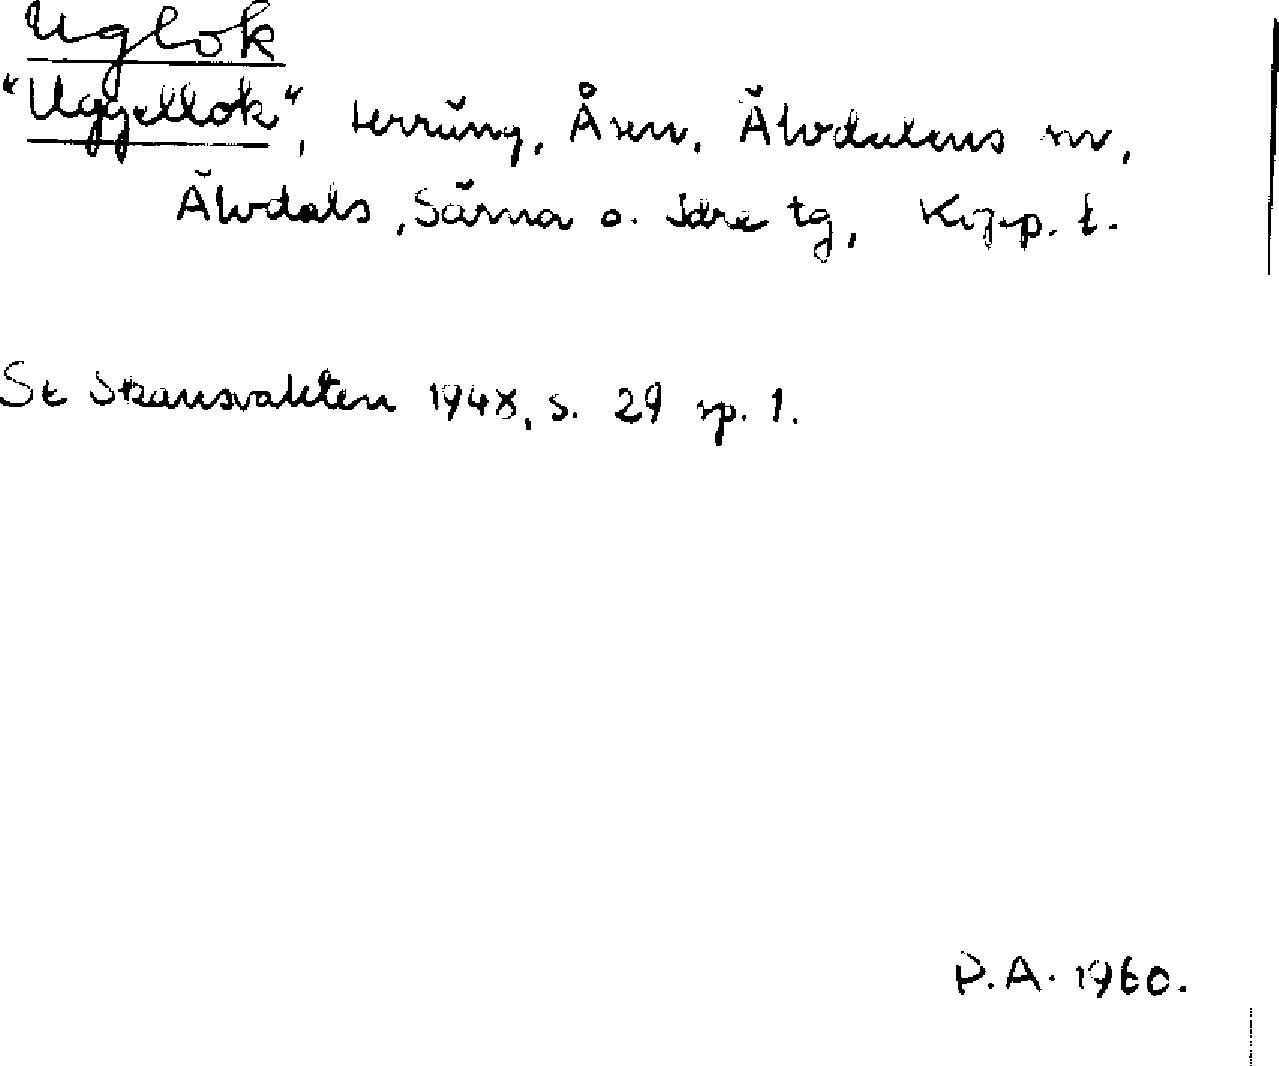 Uglok
"Uggellok", terräng, Åsen, Älvdalens sn,
Älvdals, Särna o. Idre tg, Kopp. l.
Se Skansvakten 1948, s. 29 sp. 1.
P.A. 1960.